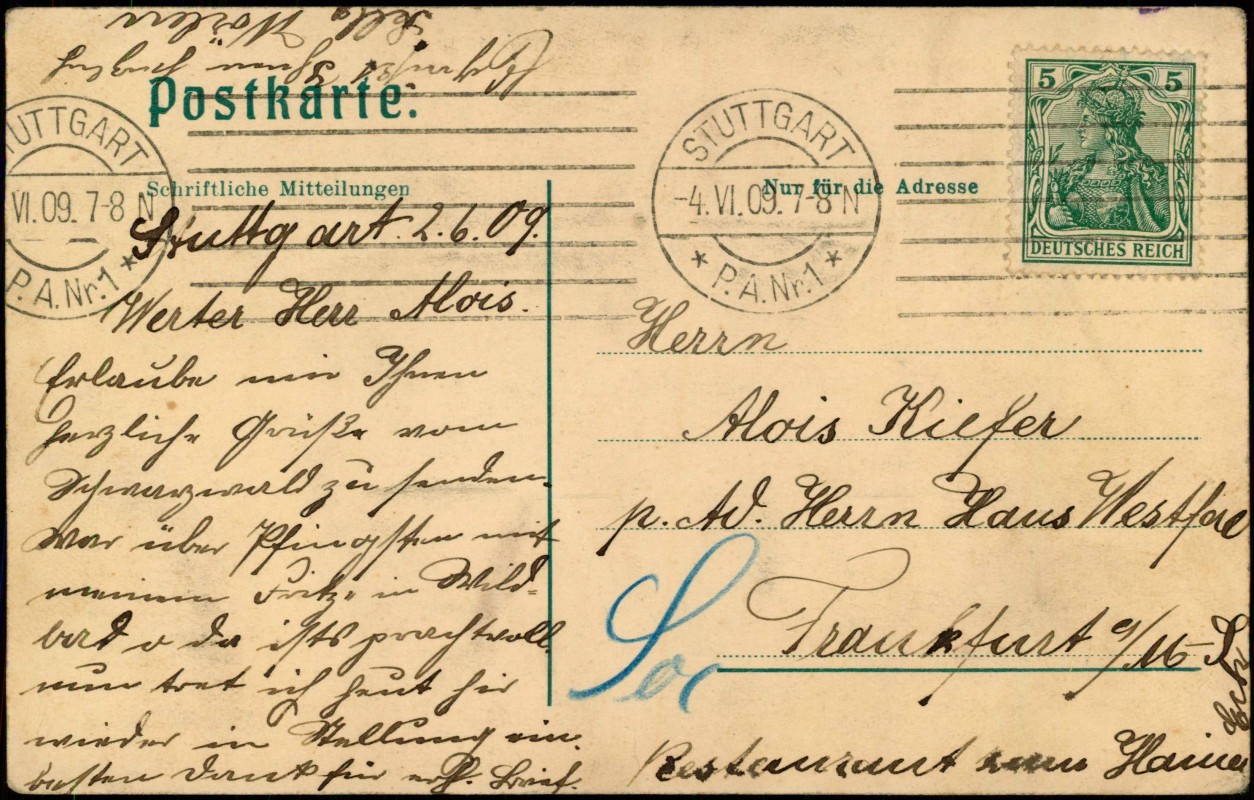 Postkarte.
Schriftliche Mitteilungen
Nur für die Adresse
5 5
DEUTSCHES REICH
STUTTGART
VI.09. 7-8 N
* P.A.Nr.1 *
STUTTGART
-4.VI.09. 7-8 N
* P.A.Nr.1 *
Stuttgart. 2.6.09.
Werter Herr Alois.
Erlaube mir Ihnen
herzliche Grüße vom
Schwarzwald zu senden.
War über Pfingsten mit
meinem Fritze in Wild-
bad o da ists prachtvoll.
nun tret ich heut hir
wieder in Stellung ein.
besten Dank für erh. Brief.
Ihnen
Herrn
Alois Kiefer
p. Ad. Herrn Haus Westfal
Frankfurt a/M-S
Restaurant zum Hainer